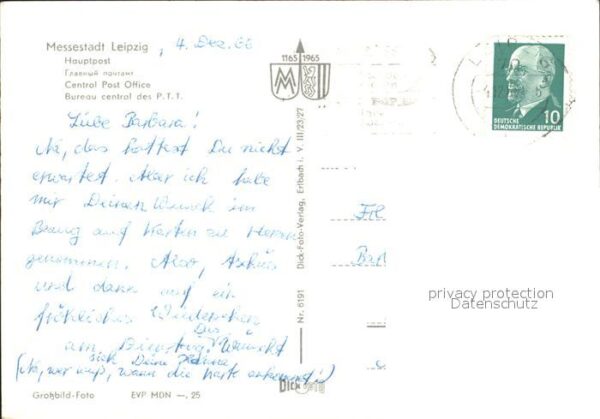 Messestadt Leipzig, 4. Dez. 66
Hauptpost
Главный почтамт
Central Post Office
Bureau central des P.T.T.
1165 1965
MM
DEUTSCHE
DEMOKRATISCHE REPUBLIK 10
Liebe Barbara!
Na, das hattest Du nicht
erwartet. Aber ich habe
mir Deinen Wunsch im
Bezug auf Karten zu Herzen
genommen. Also, tschüs
und dann auf ein
fröhliches Wiedersehen
am Dienstag! Das wünscht
sich Deine
(Na, wer weiß, wann die Karte ankommt!)
Nr. 6191 Dick-Foto-Verlag, Erlbach i. V. III/23/27
privacy protection
Datenschutz
Großbild-Foto EVP MDN —, 25
Dick